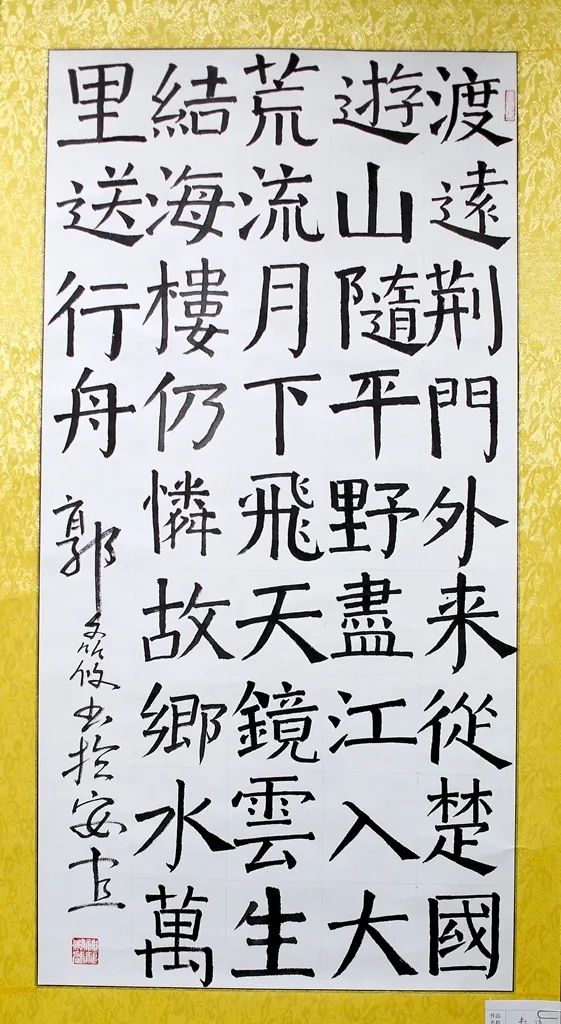 渡遠荆門外来從楚國
遊山隨平野盡江入大
荒流月下飛天鏡雲生
結海樓仍憐故鄉水萬
里送行舟
郭文筱书於安宜
作品名称